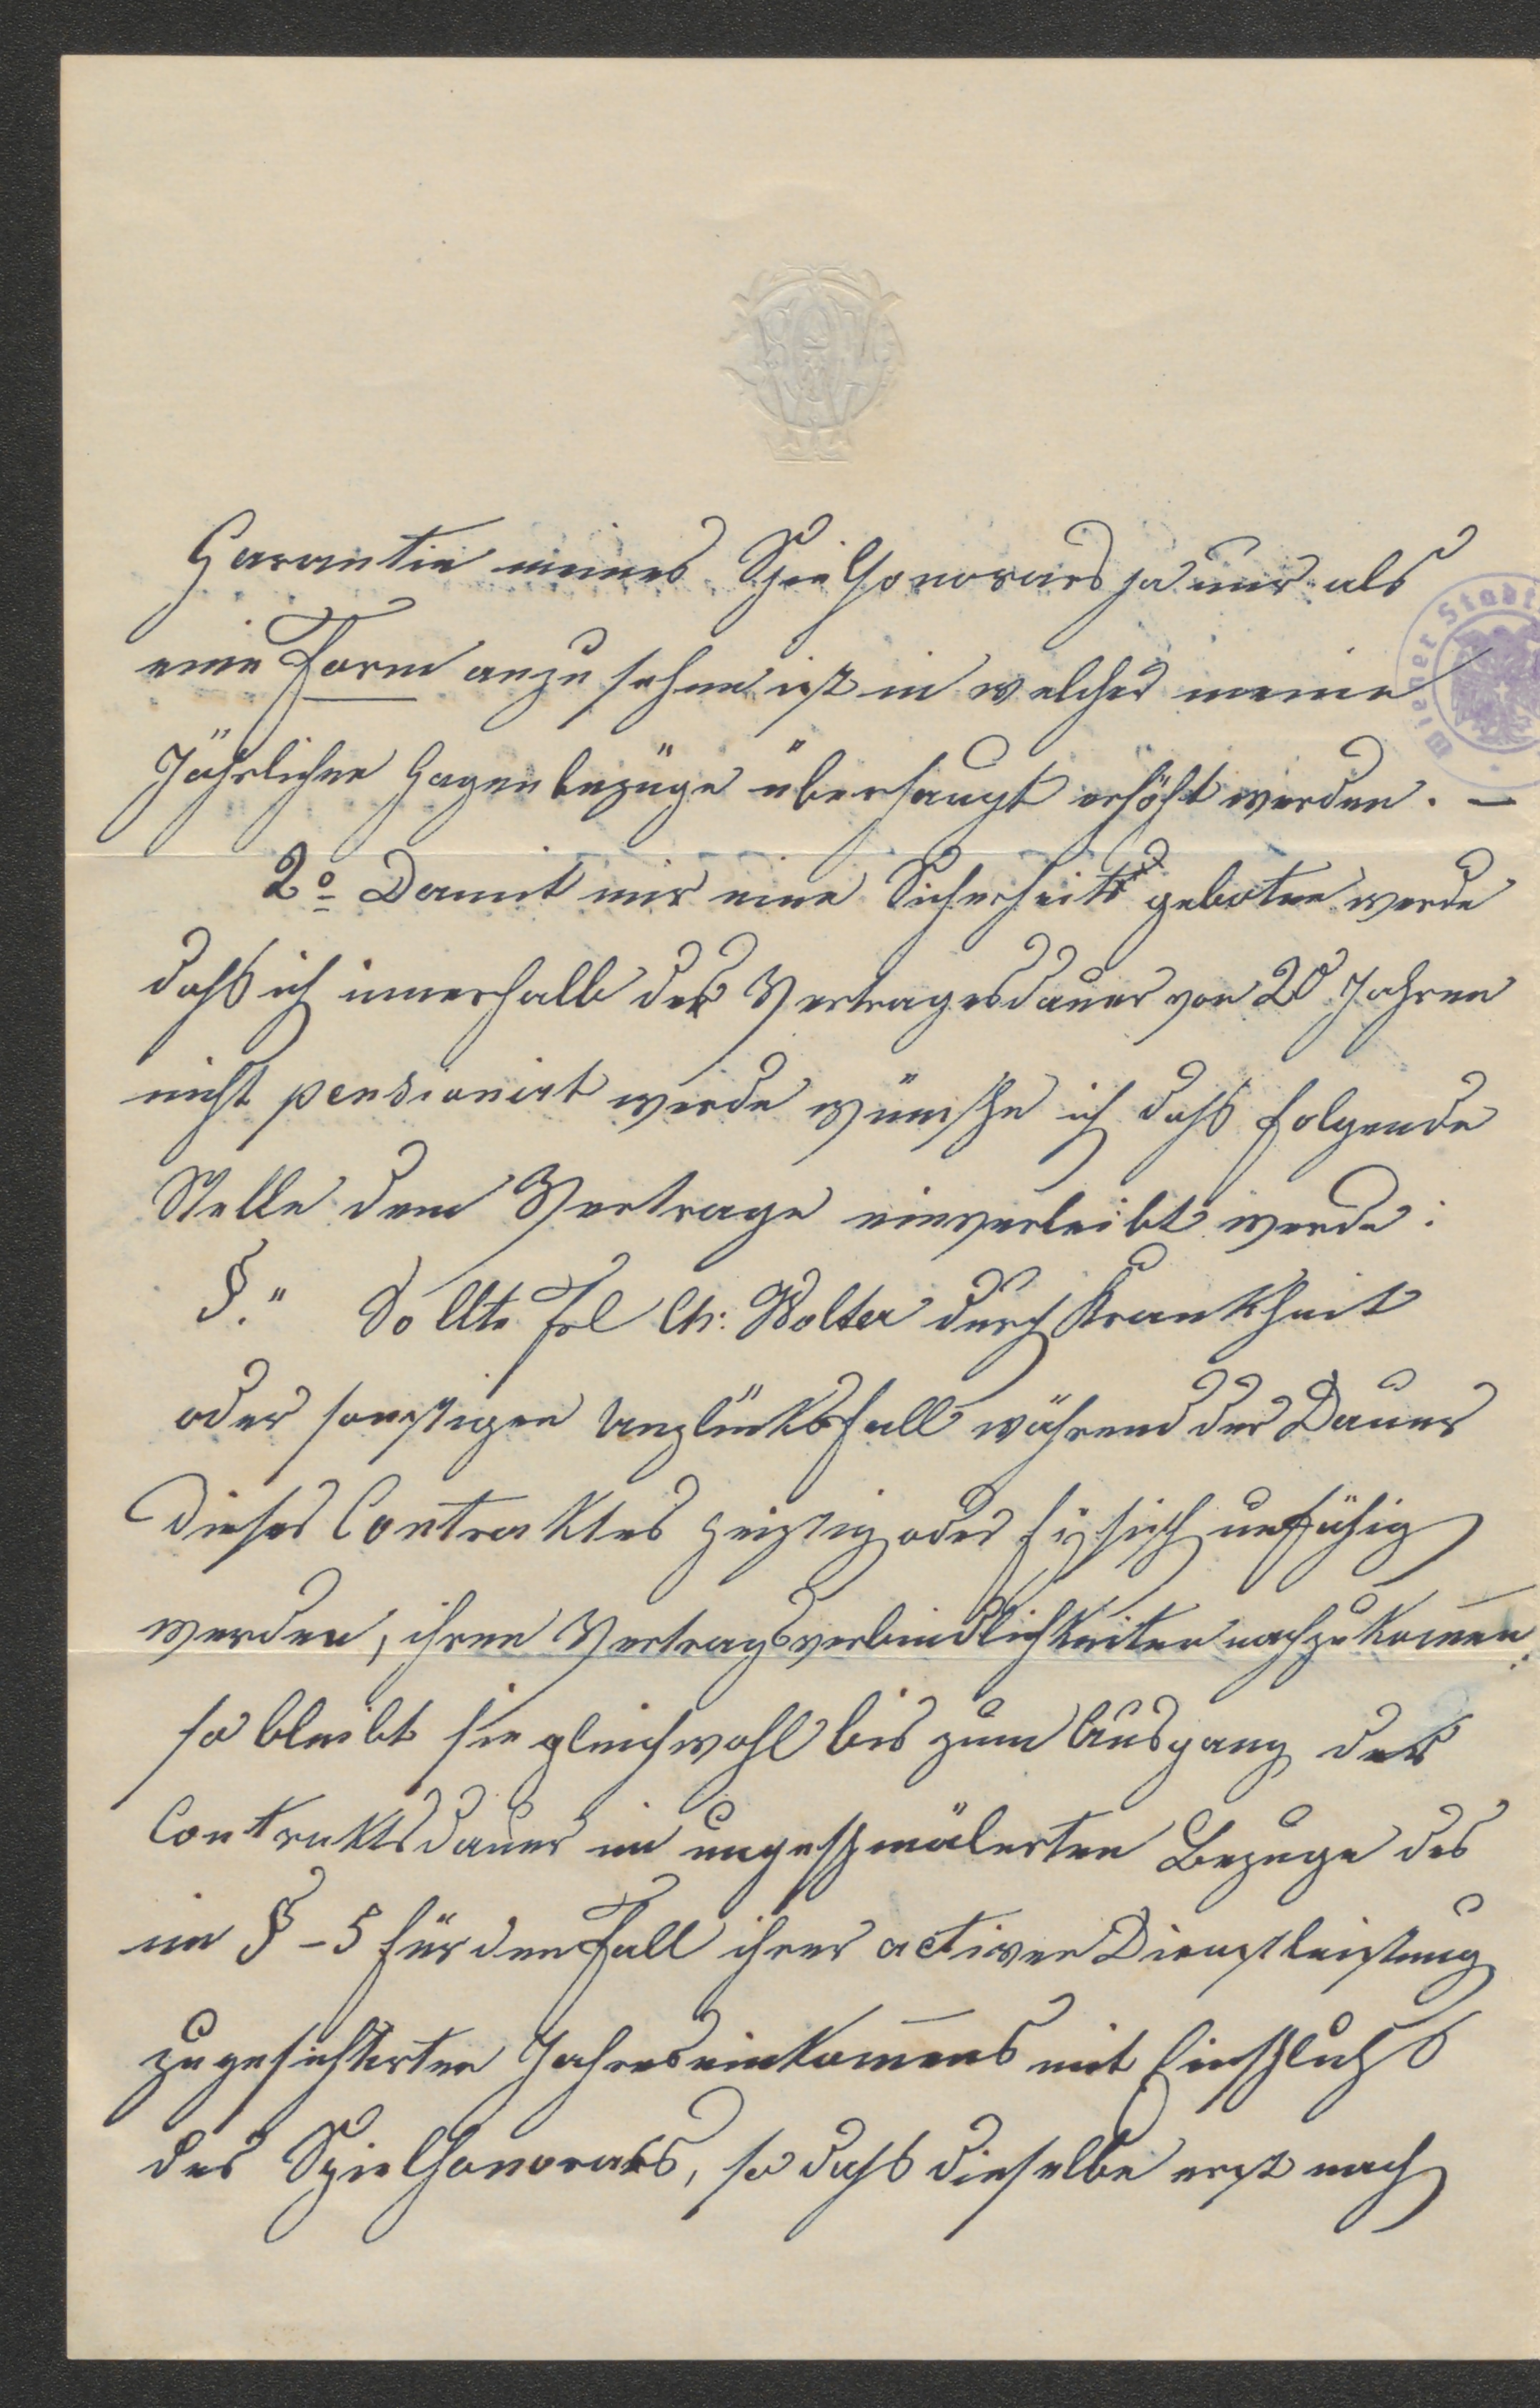 Garantie meines Spielhonorars ja nur als
eine Form anzusehen ist in welcher meine
Jährlichen Gagenbezüge überhaupt erhöht werden. –
2o Damit mir eine Sicherheit geboten werde
daß ich innerhalb der Vertragesdauer von 20 Jahren
nicht pensionirt werde wünsche ich daß folgende
Stelle dem Vertrage einverleibt werde:
§. " Sollte Frl Ch. Wolter durch Krankheit
oder sonstigen Unglücksfall während der Dauer
dieses Contraktes geistig oder fysisch unfähig
werden, ihren Vertragsverbindlichkeiten nachzukom̅en
so bleibt sie gleichwohl bis zum Ausgang der
Contraktsdauer im ungeschmälerten Bezuge des
im § – 5 für den Fall ihrer activen Dienstleistung
zugesicherten Jahreseinkom̅ens mit Einschluß
des Spielhonorars, so daß dieselbe erst nach
Wiener Stadt